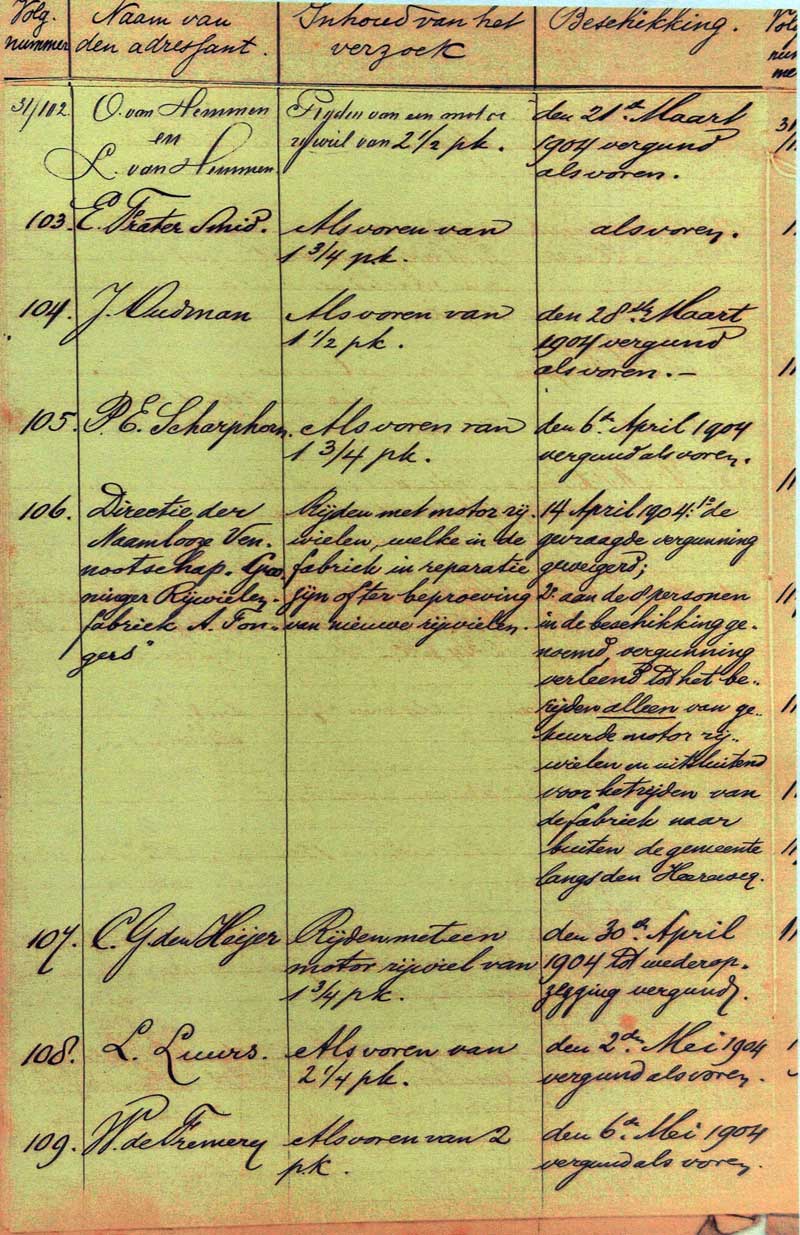 Volg- Naam van Inhoud van het Beschikking.
nummer den adressant. verzoek
31/102. O. van Hemmen Rijden van een motor den 21st Maart
en rijwiel van 2 1/2 pk. 1904 vergund
L. van Hemmen als voren.
103. E. Frater Smid. Als voren van als voren.
1 3/4 pk.
104. J. Oudman Als voren van den 28sten Maart
1 1/2 pk. 1904 vergund
als voren.-
105. P. E. Scharphorn. Als voren van den 6en April 1904
1 3/4 pk. vergund als voren.
106. Directie der Rijden met motor rij- 14 April 1904: 1o de
Naamlooze Ven- wielen, welke in de gevraagde vergunning
nootschap. Gro- fabriek in reparatie geweigerd;
ninger Rijwielen- zijn of ter beproeving 2o aan de 8 personen
fabriek A. Fon- van nieuwe rijwielen. in de beschikking ge-
gers" noemd, vergunning
verleend tot het be-
rijden alleen van ge-
keurde motor rij-
wielen en uitsluitend
voor het rijden van
de fabriek naar
buiten de gemeente
langs den Heereweg.
107. C. G. den Heijer Rijden met een den 30en April
motor rijwiel van 1904 tot wederop-
1 3/4 pk. zegging vergund.
108. L. Luurs. Als voren van den 2den Mei 1904
2 1/4 pk. vergund als voren.
109. W. de Fremery Als voren van 2 den 6en Mei 1904
pk. vergund als voren.